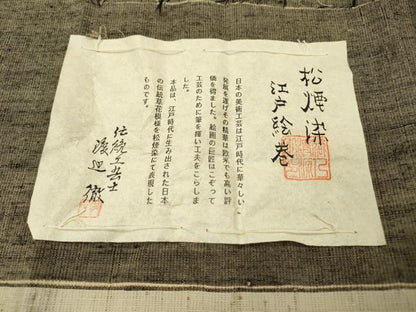 松煙染
江戸絵巻
日本の美術工芸は江戸時代に華々しい
発展を遂げその精華は欧米でも高い評
価を得ました。絵画の巨匠はこぞって
工芸のために筆を揮い工夫をこらしま
した。
本品は、江戸時代に生み出された日本
の伝統草花模様を松煙染にて表現した
ものです。
伝統工芸士
徹